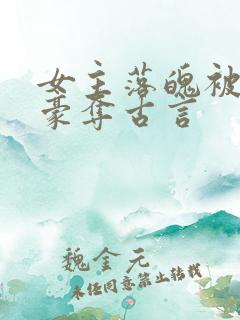 女主落魄被
豪夺古言
魏金元
未经同意禁止转载